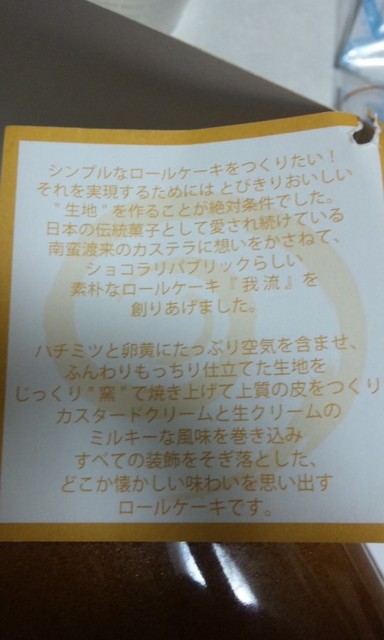 シンプルなロールケーキをつくりたい！
それを実現するためには とびきりおいしい
"生地"を作ることが絶対条件でした。
日本の伝統菓子として愛され続けている
南蛮渡来のカステラに想いをかさねて、
ショコラリパブリックらしい
素朴なロールケーキ『我流』を
創りあげました。
ハチミツと卵黄にたっぷり空気を含ませ、
ふんわりもっちり仕立てた生地を
じっくり"窯"で焼き上げて上質の皮をつくり
カスタードクリームと生クリームの
ミルキーな風味を巻き込み
すべての装飾をそぎ落とした、
どこか懐かしい味わいを思い出す
ロールケーキです。